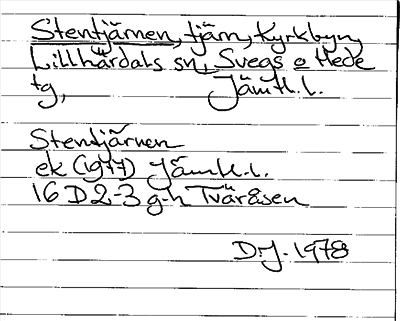 Stentjärnen, tjärn, Kyrkbyn,
Lillhärdals sn, Svegs o Hede
tg, Jämtl.l.
Stentjärnen
ek (1977) Jämtl.l.
16 D 2-3 g-h Tväråsen
D.J. 1978